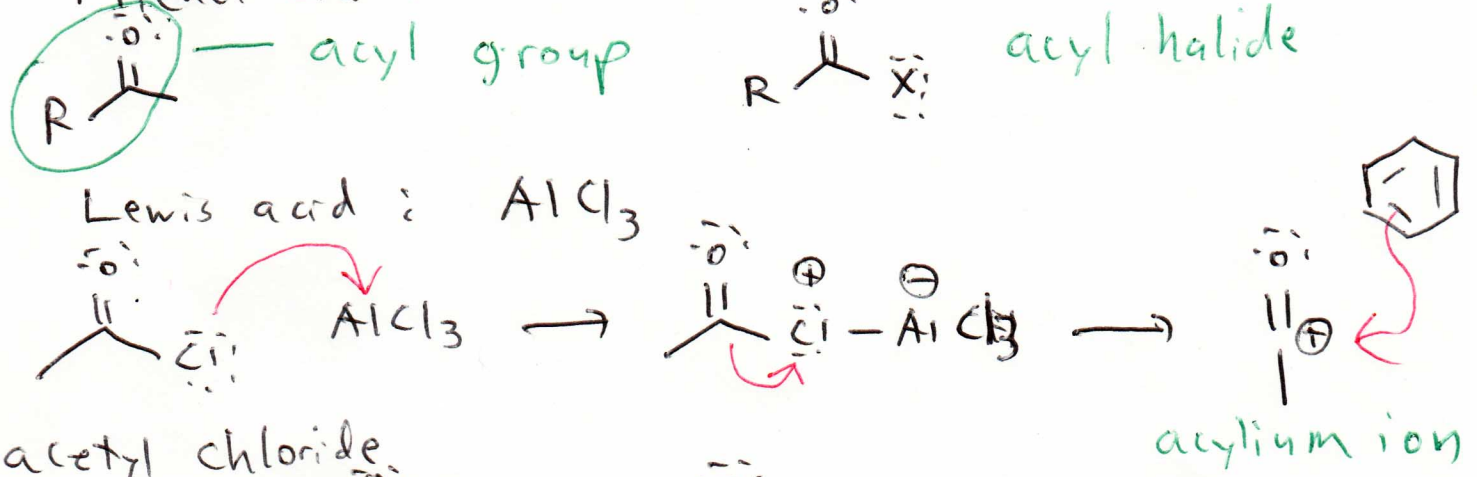 :O: — acyl group
R
:O:
R X: acyl halide
Lewis acid : AlCl3
:O: Cl: AlCl3 → :O: ⊕ Cl — ⊖ AlCl3 → :O: ⊕
acetyl chloride
acylium ion